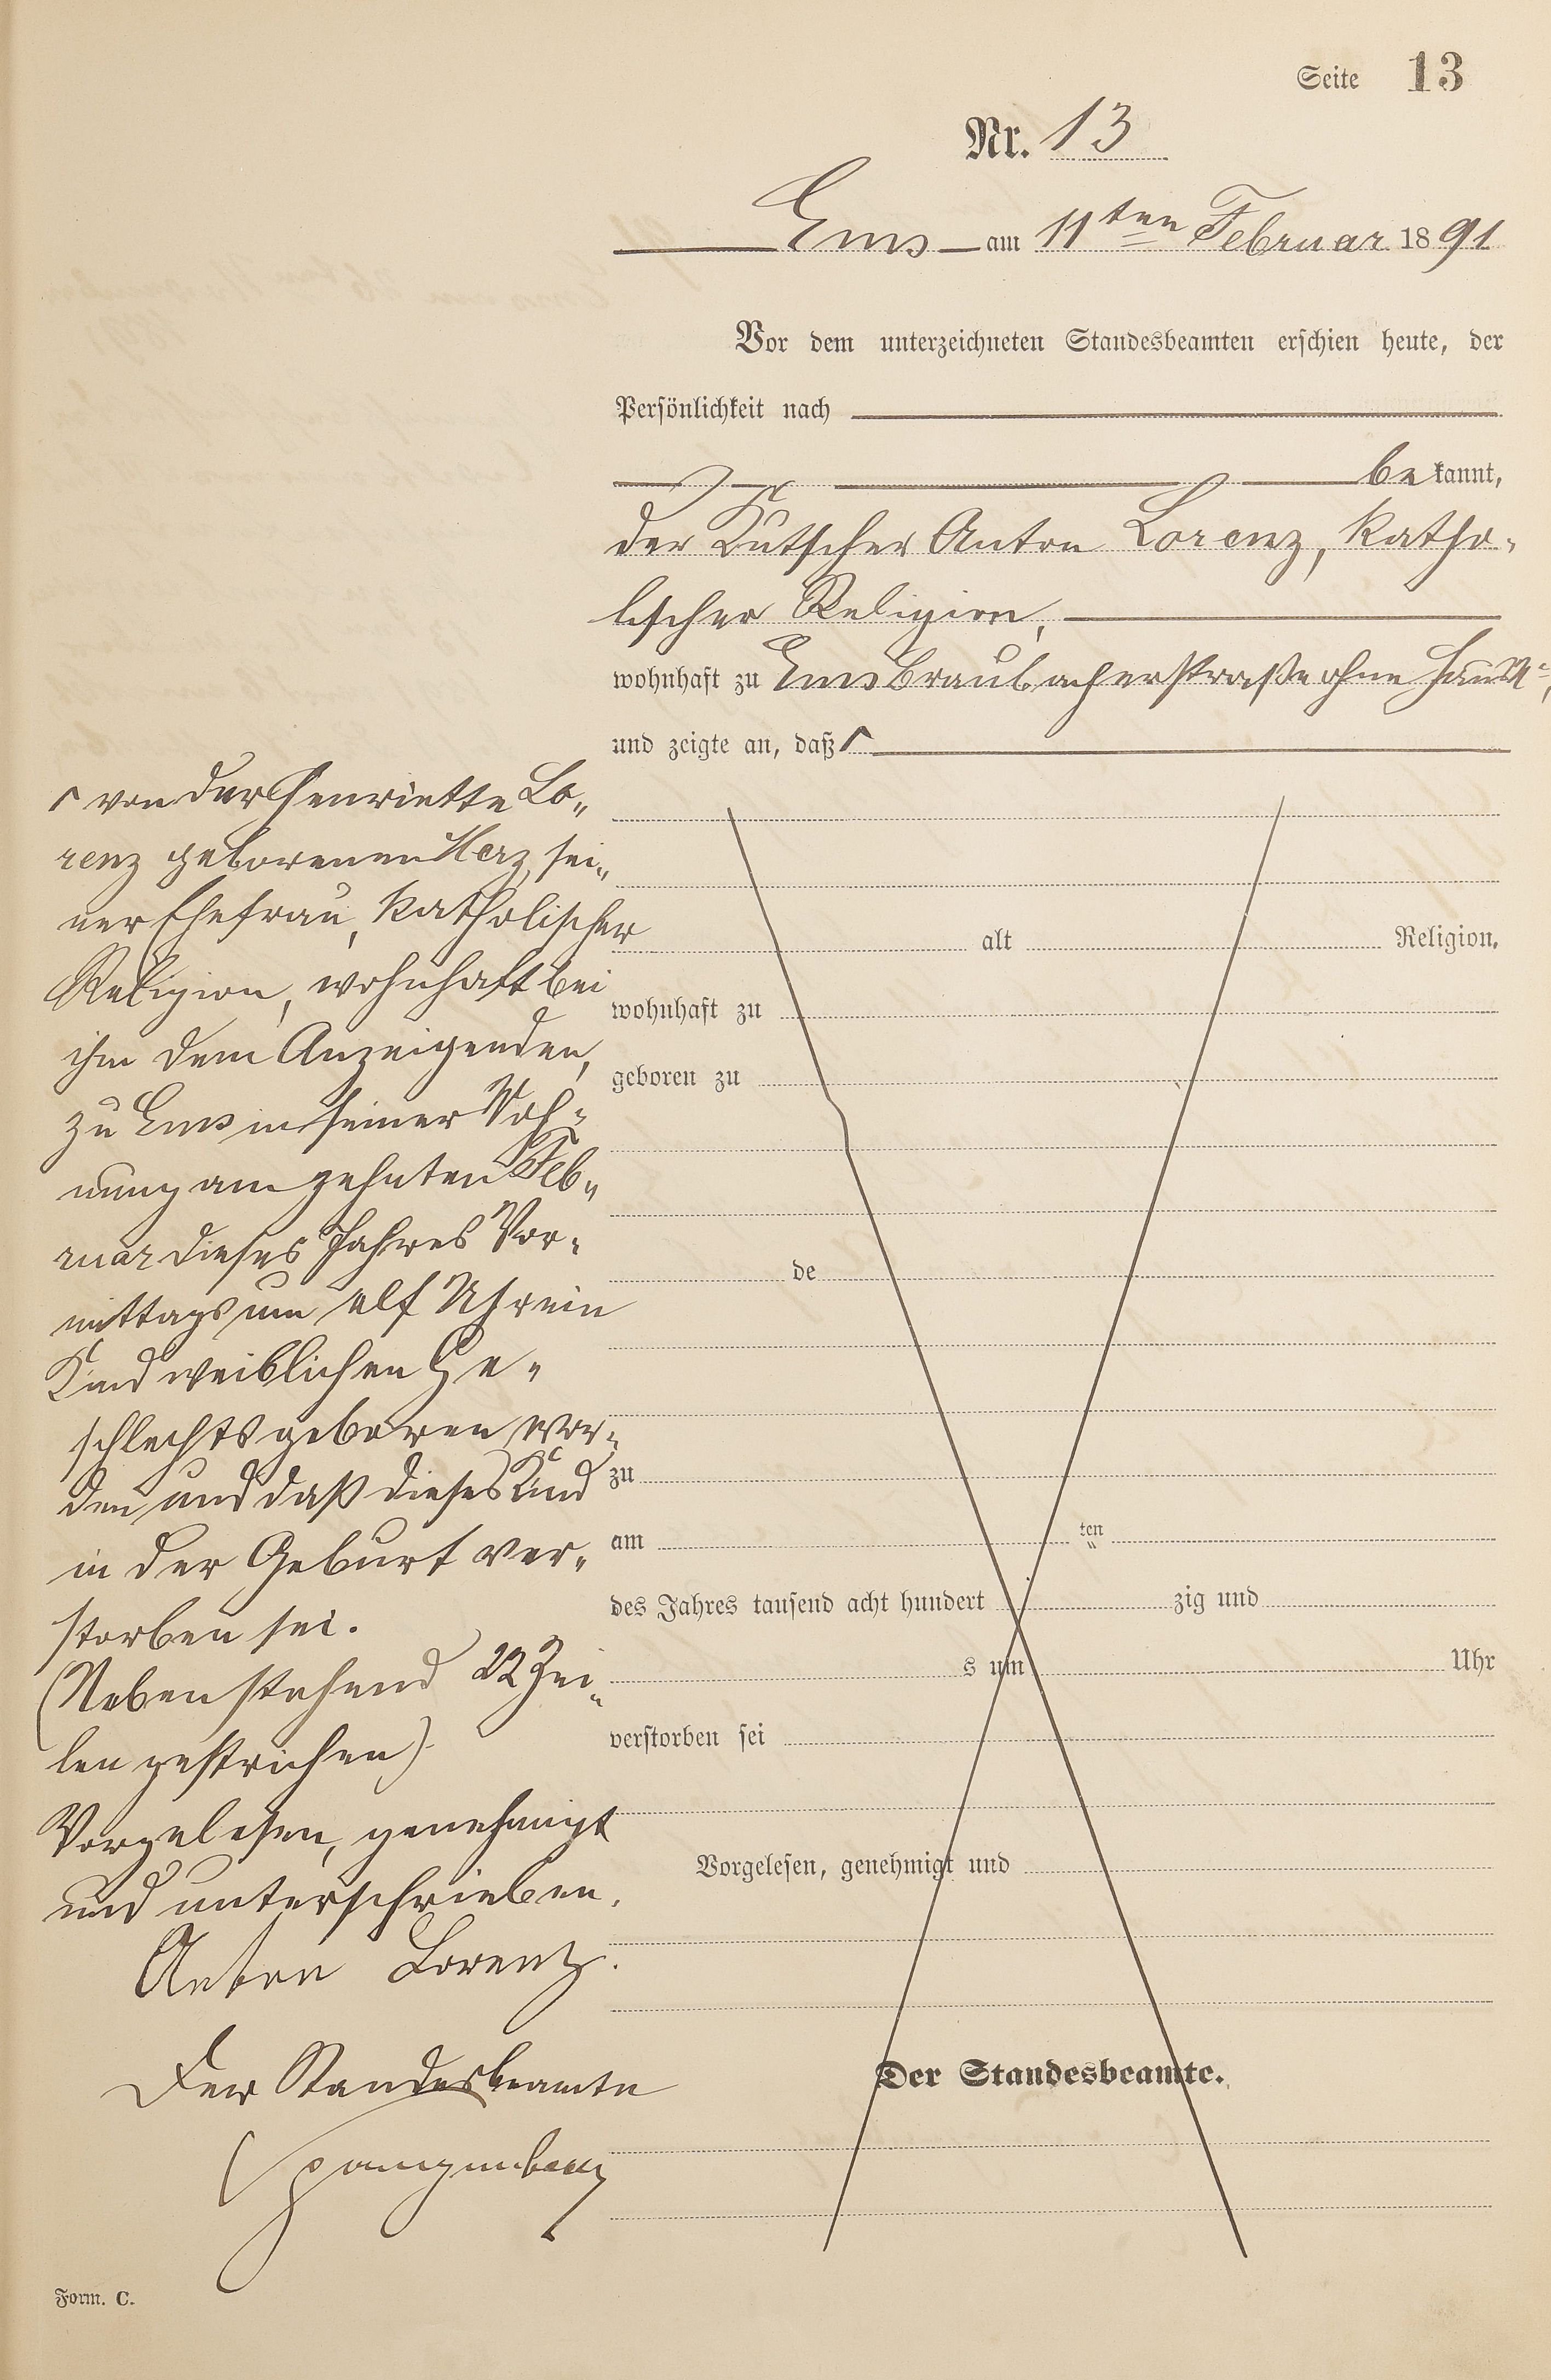 Seite 13
Nr. 13
Ems am 11ten Februar 1891
Vor dem unterzeichneten Standesbeamten erschien heute, der
Persönlichkeit nach
bekannt,
der Kutscher Anton Lorenz, katho-
lischer Religion,
wohnhaft zu Ems Braubacherstraße ohne Haus N°,
und zeigte an, daß ┌
┌ von der Henriette Lo-
renz geborenen Herz, sei-
ner Ehefrau, katholischer
Religion, wohnhaft bei
ihm dem Anzeigenden,
zu Ems in seiner Woh-
nung am zehnten Feb-
ruar dieses Jahres Vor-
mittags um elf Uhr ein
Kind weiblichen Ge-
schlechts geboren wor-
den und daß dieses Kind
in der Geburt ver-
storben sei.
(Nebenstehend 22 Zei-
len gestrichen)
Vorgelesen, genehmigt
und unterschrieben.
Anton Lorenz.
Der Standesbeamte
Spangenberg
alt Religion,
wohnhaft zu
geboren zu
de
zu
am ten
des Jahres tausend acht hundert zig und
s um Uhr
verstorben sei
Vorgelesen, genehmigt und
Der Standesbeamte.
Form. C.